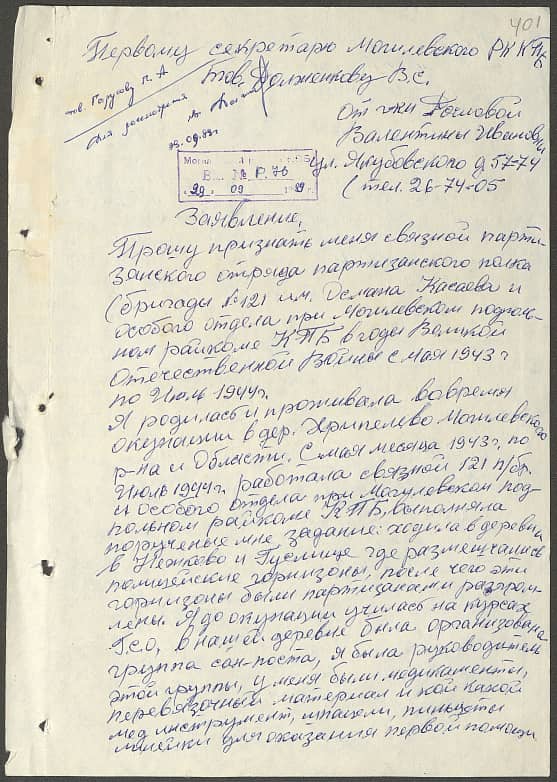 401
Первому секретарю Могилевского РК КПБ
тов. Долженкову В.С.
тов.
Для рассмотрения
29.09.89г
От гр-ки Рословой
Валентины Ивановны
ул. Якубовского д. 57-74
( тел. 26-74-05
Вх. № Р. 76
"29" 09 1989
Заявление,
Прошу признать меня связной парти-
занского отряда партизанского полка
(бригады № 121 им. Османа Касаева и
особого отдела при Могилевском подполь-
ном райкоме КПБ в годы Великой
Отечественной Войны с мая 1943 г
по Июль 1944г.
Я родилась и проживала вовремя
окупации в дер. Хрипелево Могилевского
р-на и Области. С мая месяца 1943г. по
Июль 1944г. работала связной 121 п/бр.
и особого отдела при Могилевском под-
польном райкоме КПБ, выполняла
порученые мне задание: ходила в деревни
в Нежково и Гуслище где размещались
полицейские горнизоны, после чего эти
горнизоны были партизанами разгром-
лены. Я до окупации училась на курсах
Г.с.о, в нашей деревне была организована
группа сан-поста, я была руководителем
этой группы, у меня были медикаменты,
перевязочный материал и кой какой
мед инструмент, шпацели, пинцеты
для оказания первой помощи